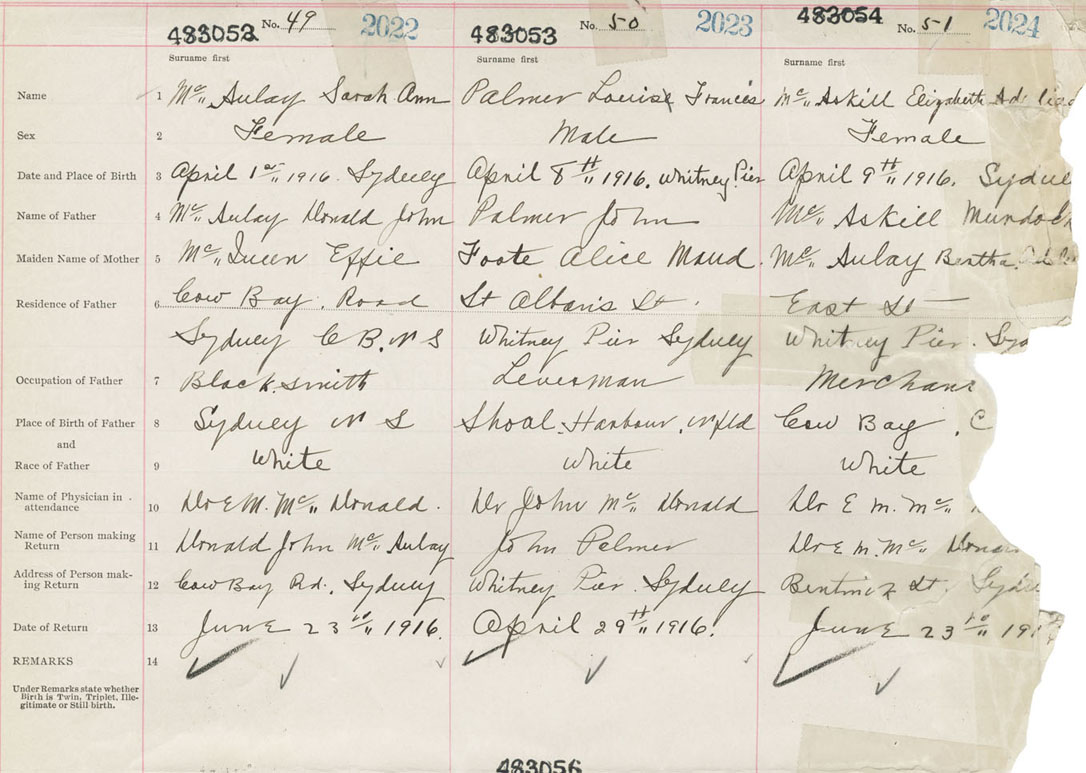 483052 No. 49 2022 483053 No. 50 2023 483054 No. 51 2024
Surname first Surname first Surname first
Name 1 Mc Aulay Sarah Ann Palmer Louise Francis Mc Askill Elizabeth
Sex 2 Female Male Female
Date and Place of Birth 3 April 1st 1916. Sydney April 8th 1916. Whitney Pier April 9th 1916. Sydne
Name of Father 4 Mc Aulay Donald John Palmer John Mc Askill Murdoch
Maiden Name of Mother 5 Mc Queen Effie Foote Alice Maud. Mc Aulay Bertha
Residence of Father 6 Cow Bay. Road St Alban's St. East St
Sydney C B. N S Whitney Pier Sydney Whitney Pier. Syd
Occupation of Father 7 Black.smith Leverman Merchan
Place of Birth of Father 8 Sydney N S Shoal Harbour. Nfld Cow Bay. C
and
Race of Father 9 White White White
Name of Physician in attendance 10 Dr E M. Mc Donald. Dr John Mc Donald Dr E M. Mc
Name of Person making Return 11 Donald John Mc Aulay John Palmer Dr E M. Mc Donal
Address of Person making Return 12 Cow Bay Rd. Sydney Whitney Pier. Sydney St. Sydne
Date of Return 13 June 23rd 1916. April 29th 1916. June 23rd 191
REMARKS 14
Under Remarks state whether
Birth is Twin, Triplet, Ille-
gitimate or Still birth.
483056